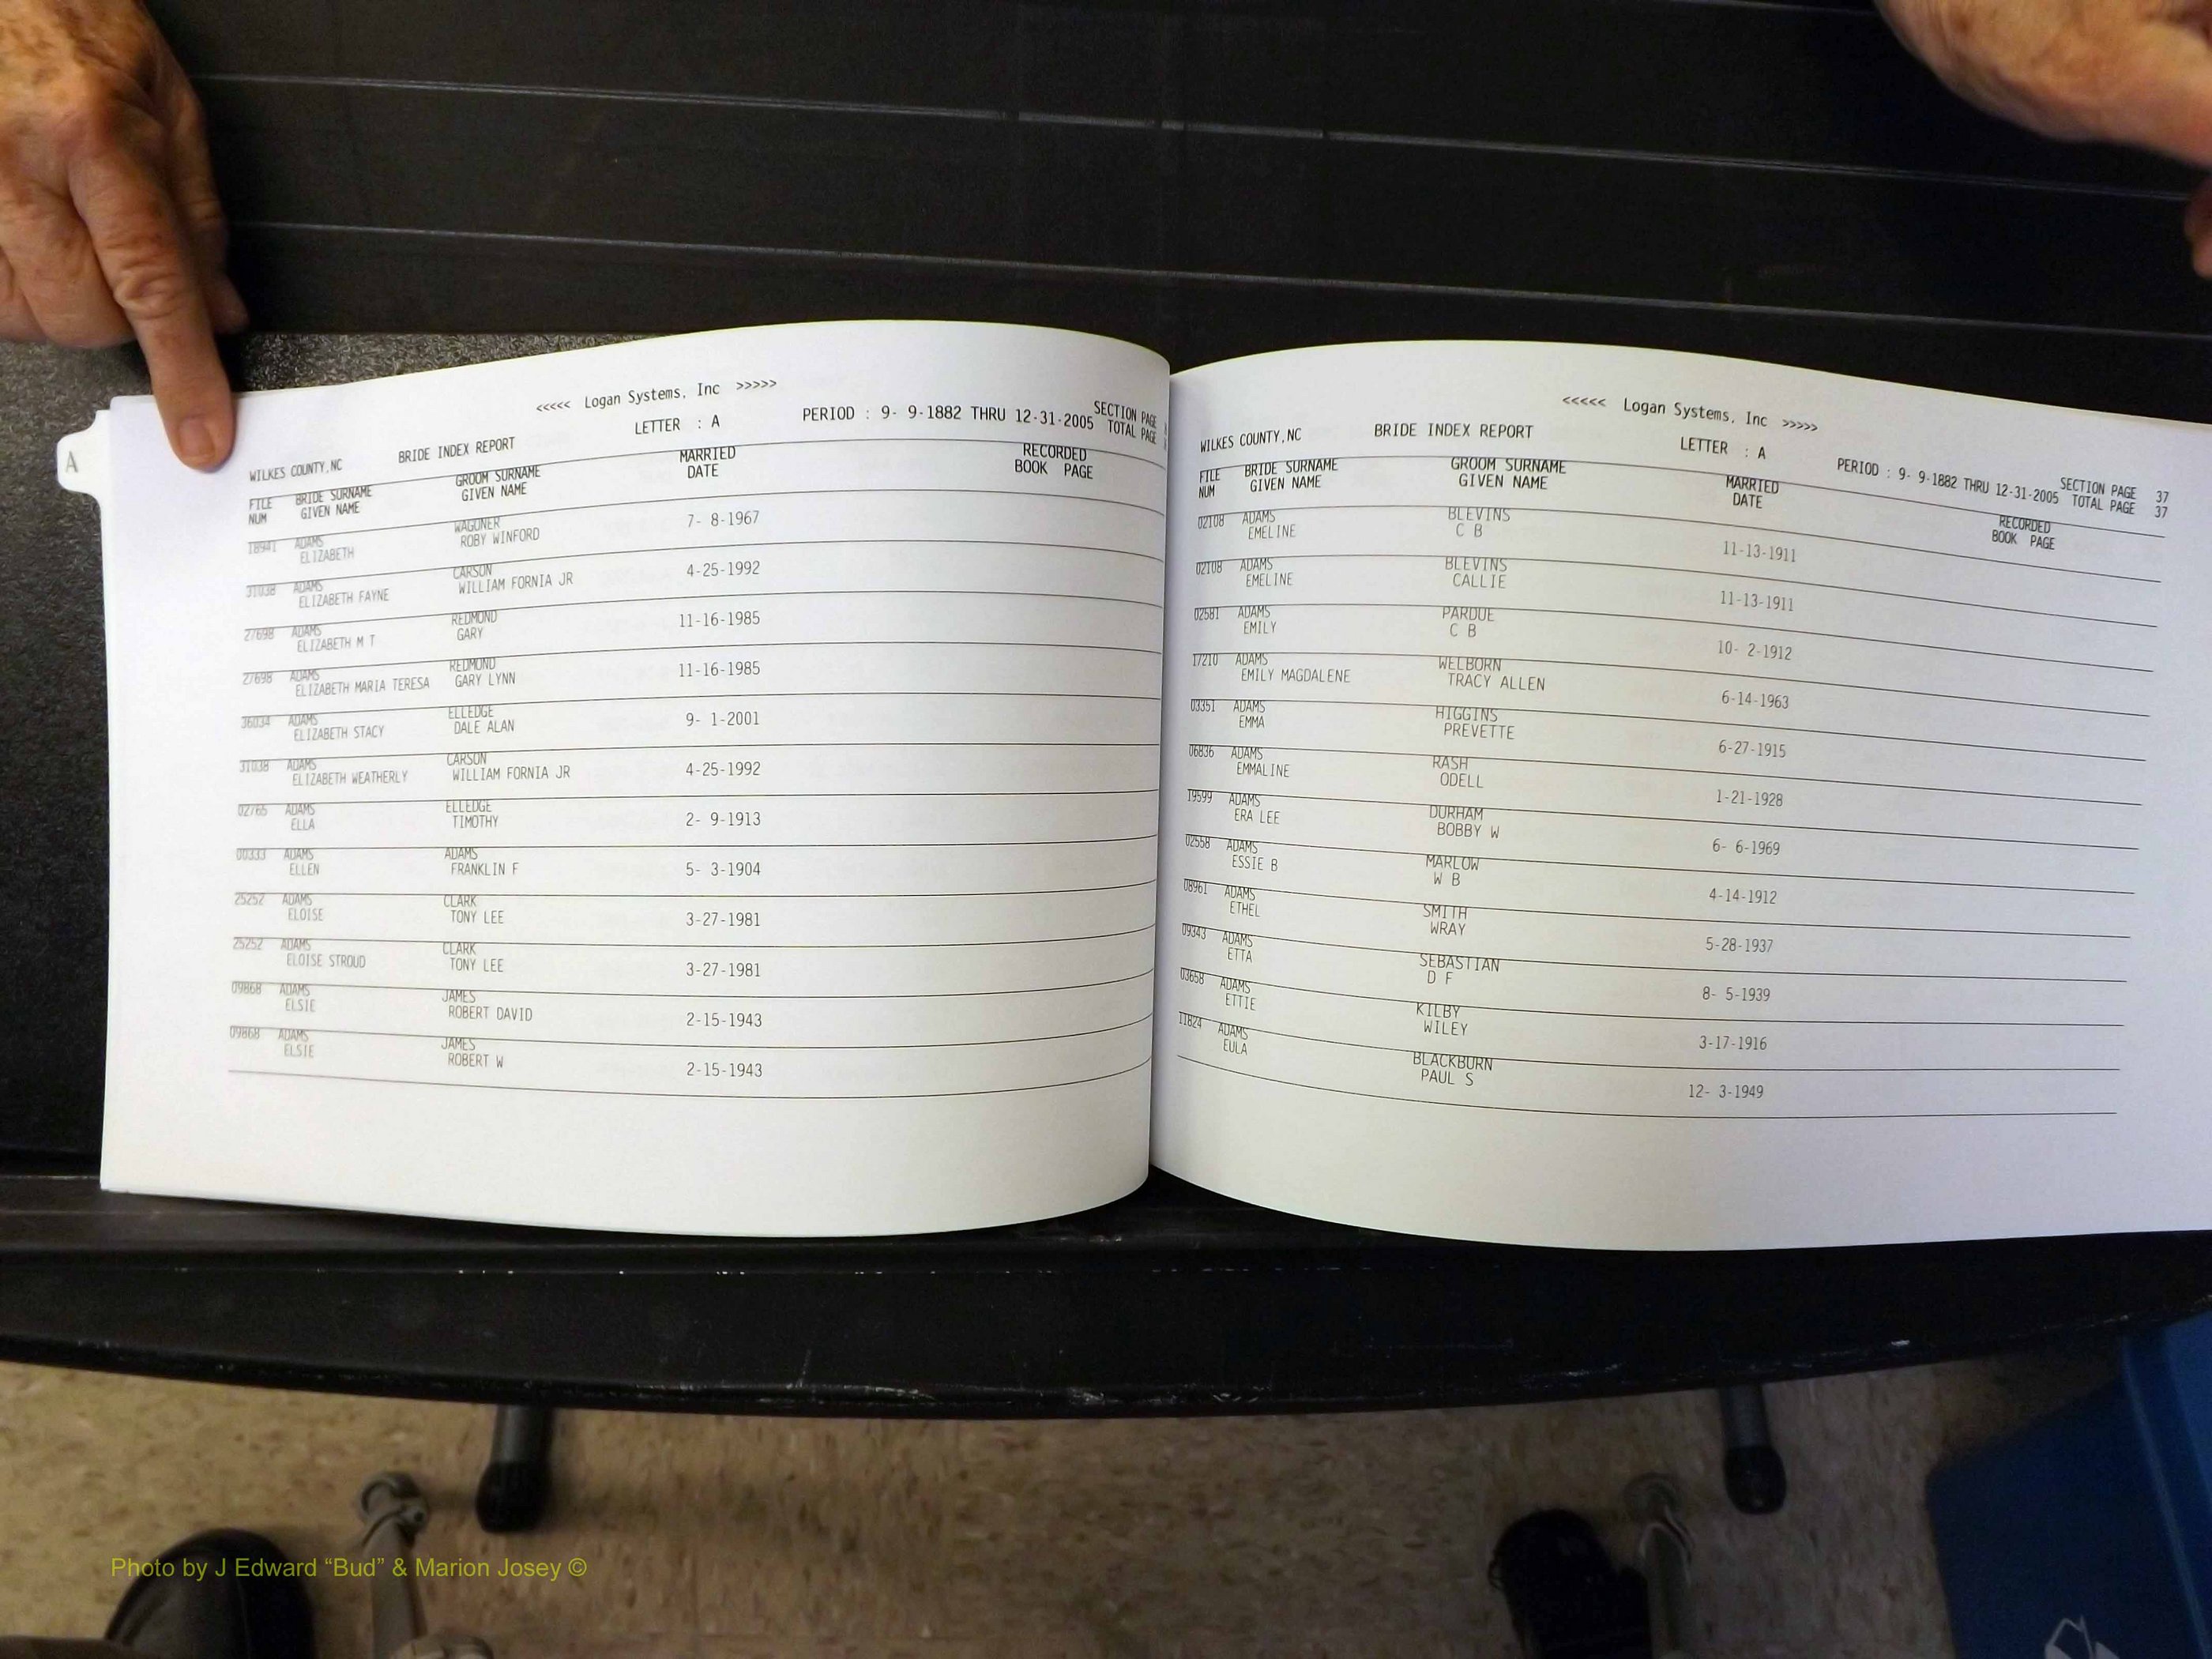 A
<<<<< Logan Systems, Inc >>>>>
WILKES COUNTY,NC BRIDE INDEX REPORT LETTER : A PERIOD : 9- 9-1882 THRU 12-31-2005 SECTION PAGE
TOTAL PAGE
FILE BRIDE SURNAME GROOM SURNAME MARRIED RECORDED
NUM GIVEN NAME GIVEN NAME DATE BOOK PAGE
18941 ADAMS WAGONER
ELIZABETH ROBY WINFORD 7- 8-1967
31038 ADAMS CARSON
ELIZABETH FAYNE WILLIAM FORNIA JR 4-25-1992
27698 ADAMS REDMOND
ELIZABETH M T GARY 11-16-1985
27698 ADAMS REDMOND
ELIZABETH MARIA TERESA GARY LYNN 11-16-1985
36034 ADAMS ELLEDGE
ELIZABETH STACY DALE ALAN 9- 1-2001
31038 ADAMS CARSON
ELIZABETH WEATHERLY WILLIAM FORNIA JR 4-25-1992
02765 ADAMS ELLEDGE
ELLA TIMOTHY 2- 9-1913
00333 ADAMS ADAMS
ELLEN FRANKLIN F 5- 3-1904
25252 ADAMS CLARK
ELOISE TONY LEE 3-27-1981
25252 ADAMS CLARK
ELOISE STROUD TONY LEE 3-27-1981
09868 ADAMS JAMES
ELSIE ROBERT DAVID 2-15-1943
09868 ADAMS JAMES
ELSIE ROBERT W 2-15-1943
<<<<< Logan Systems, Inc >>>>>
WILKES COUNTY,NC BRIDE INDEX REPORT LETTER : A PERIOD : 9- 9-1882 THRU 12-31-2005 SECTION PAGE 37
TOTAL PAGE 37
FILE BRIDE SURNAME GROOM SURNAME MARRIED RECORDED
NUM GIVEN NAME GIVEN NAME DATE BOOK PAGE
02108 ADAMS BLEVINS
EMELINE C B 11-13-1911
02108 ADAMS BLEVINS
EMELINE CALLIE 11-13-1911
02581 ADAMS PARDUE
EMILY C B 10- 2-1912
17210 ADAMS WELBORN
EMILY MAGDALENE TRACY ALLEN 6-14-1963
03351 ADAMS HIGGINS
EMMA PREVETTE 6-27-1915
06836 ADAMS RASH
EMMALINE ODELL 1-21-1928
19599 ADAMS DURHAM
ERA LEE BOBBY W 6- 6-1969
02558 ADAMS MARLOW
ESSIE B W B 4-14-1912
08961 ADAMS SMITH
ETHEL WRAY 5-28-1937
09343 ADAMS SEBASTIAN
ETTA D F 8- 5-1939
03658 ADAMS KILBY
ETTIE WILEY 3-17-1916
11824 ADAMS BLACKBURN
EULA PAUL S 12- 3-1949
Photo by J Edward “Bud” & Marion Josey ©